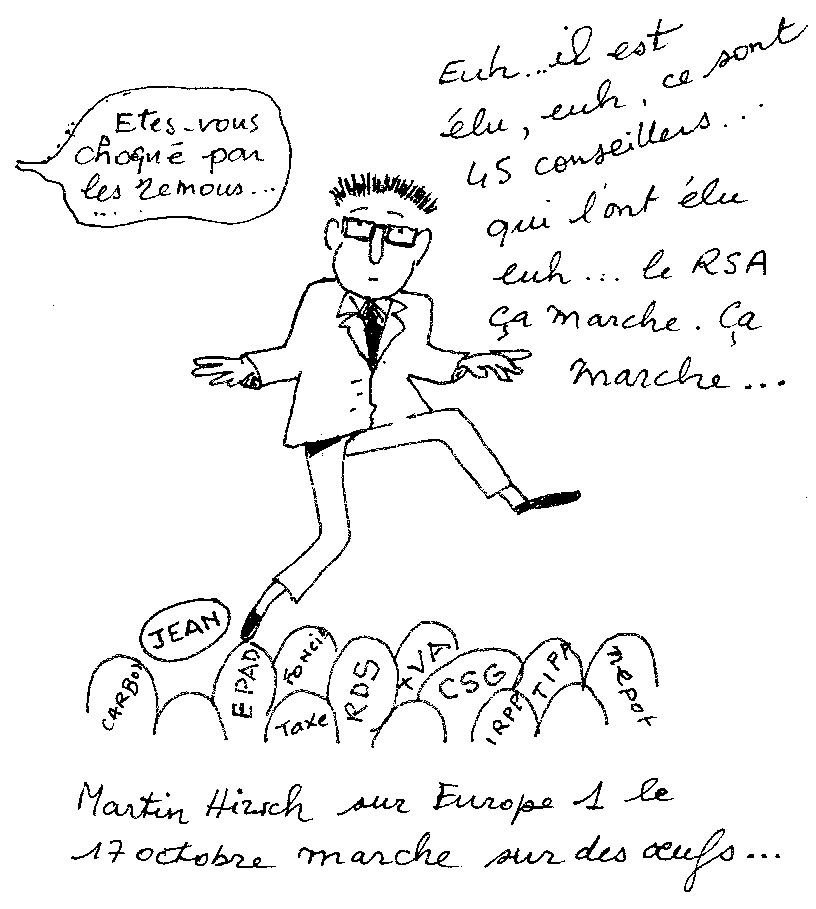 Etes-vous
choqué par
les remous...
...
Euh...il est
élu, euh, ce sont
45 conseillers...
qui l'ont élu
euh... le RSA
ça marche. Ça
marche...
JEAN
CARBON
EPAD
FONCIE
Taxe
RDS
TVA
CSG
IRPP
TIPP
nepot
Martin Hirsch sur Europe 1 le
17 octobre marche sur des œufs...